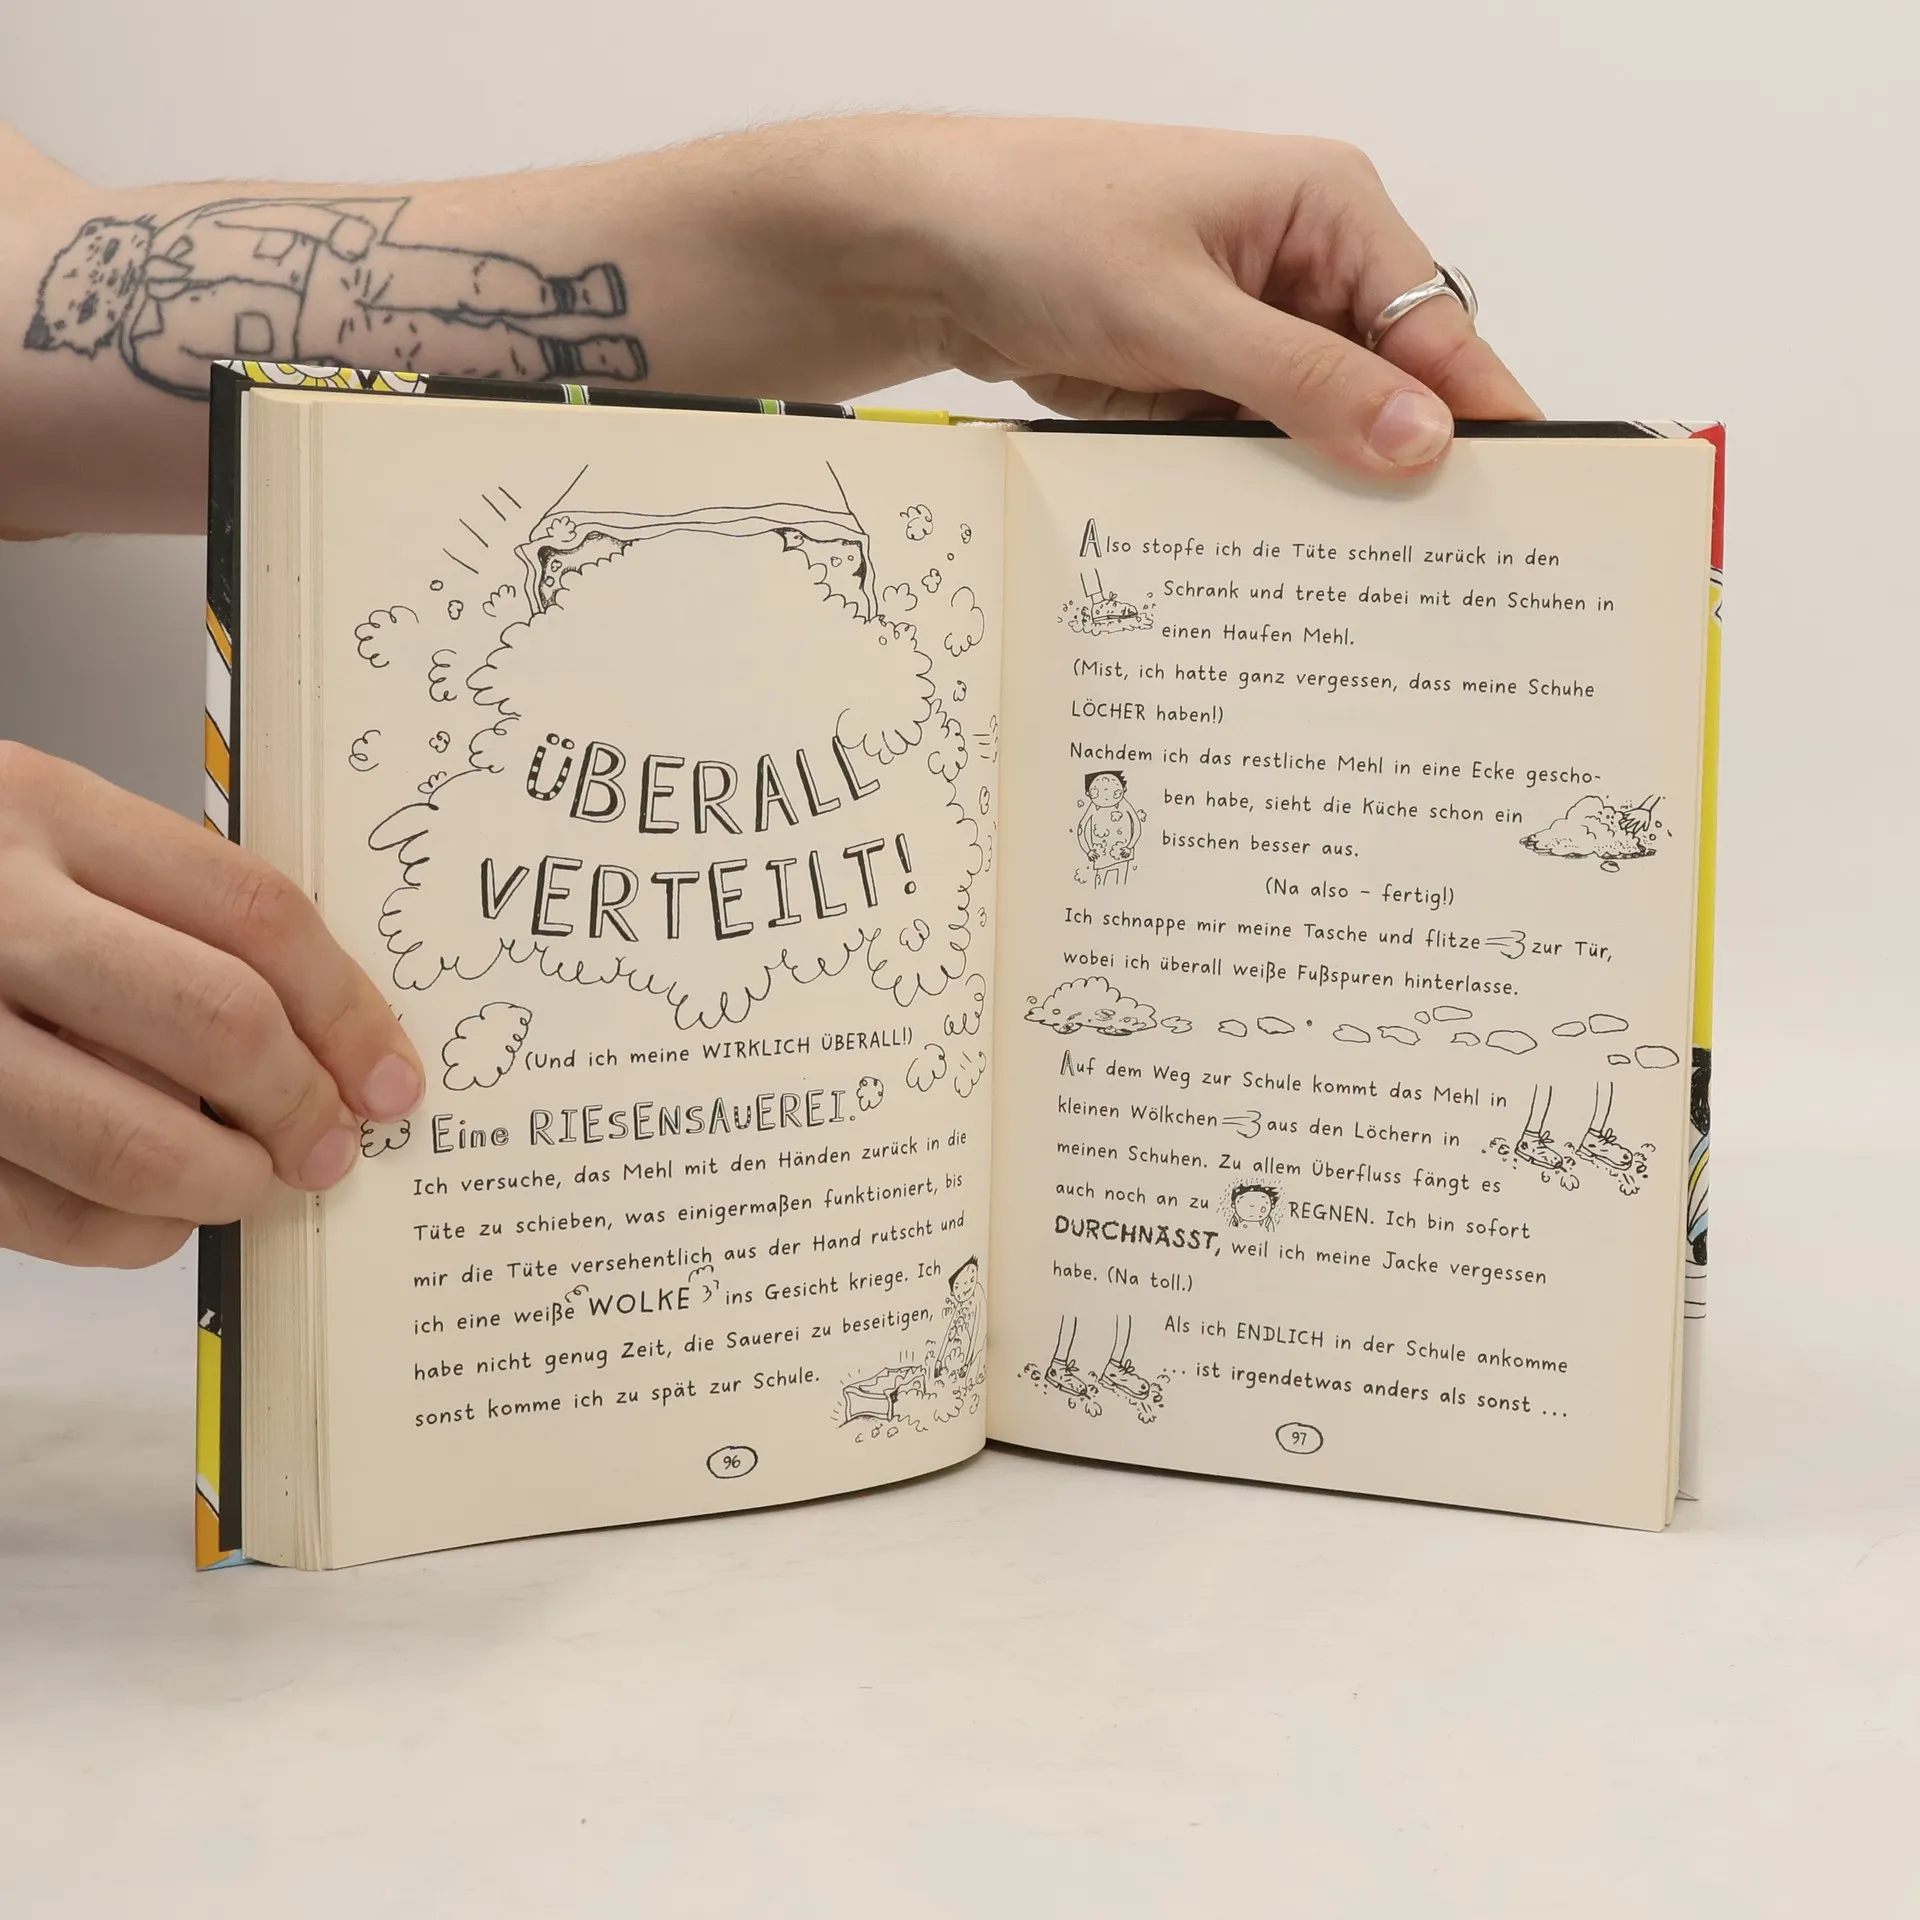 ÜBERALL
VERTEILT!
(Und ich meine WIRKLICH ÜBERALL!)
Eine RIESENSAUEREI.
Ich versuche, das Mehl mit den Händen zurück in die
Tüte zu schieben, was einigermaßen funktioniert, bis
mir die Tüte versehentlich aus der Hand rutscht und
ich eine weiße WOLKE ins Gesicht kriege. Ich
habe nicht genug Zeit, die Sauerei zu beseitigen,
sonst komme ich zu spät zur Schule.
96
Also stopfe ich die Tüte schnell zurück in den
Schrank und trete dabei mit den Schuhen in
einen Haufen Mehl.
(Mist, ich hatte ganz vergessen, dass meine Schuhe
LÖCHER haben!)
Nachdem ich das restliche Mehl in eine Ecke gescho-
ben habe, sieht die Küche schon ein
bisschen besser aus.
(Na also – fertig!)
Ich schnappe mir meine Tasche und flitze zur Tür,
wobei ich überall weiße Fußspuren hinterlasse.
Auf dem Weg zur Schule kommt das Mehl in
kleinen Wölkchen aus den Löchern in
meinen Schuhen. Zu allem Überfluss fängt es
auch noch an zu REGNEN. Ich bin sofort
DURCHNÄSST, weil ich meine Jacke vergessen
habe. (Na toll.)
Als ich ENDLICH in der Schule ankomme
... ist irgendetwas anders als sonst ...
97